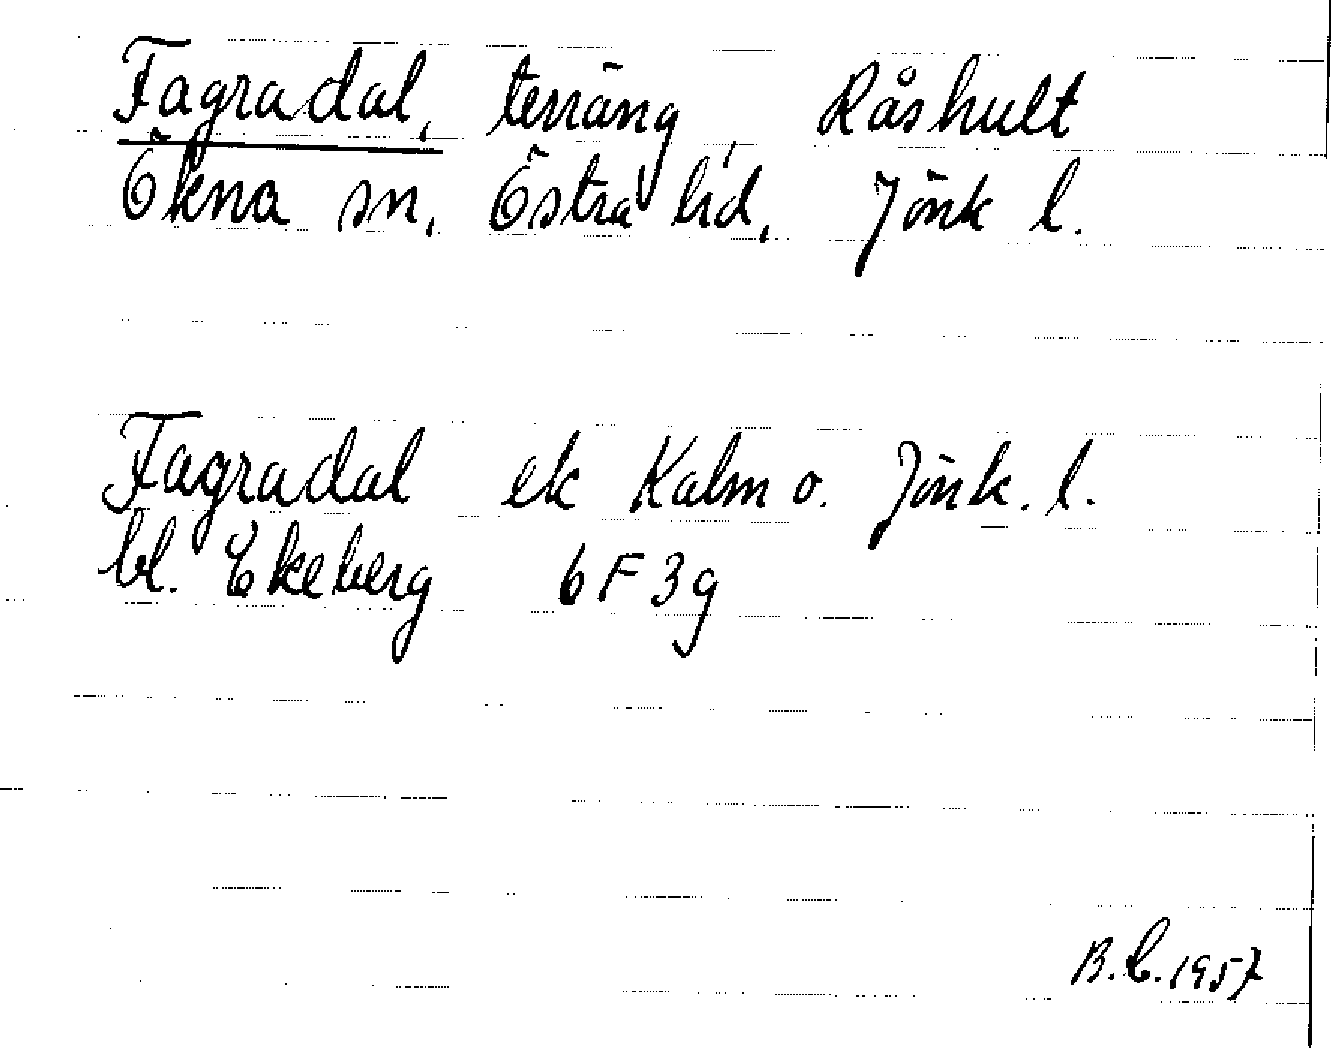 Fagradal, terräng, Råshult
Ökna sn, Östra hd, Jönk l.
Fagradal ek Kalm o. Jönk. l.
bl. Ekeberg 6F3g
B.C. 1957